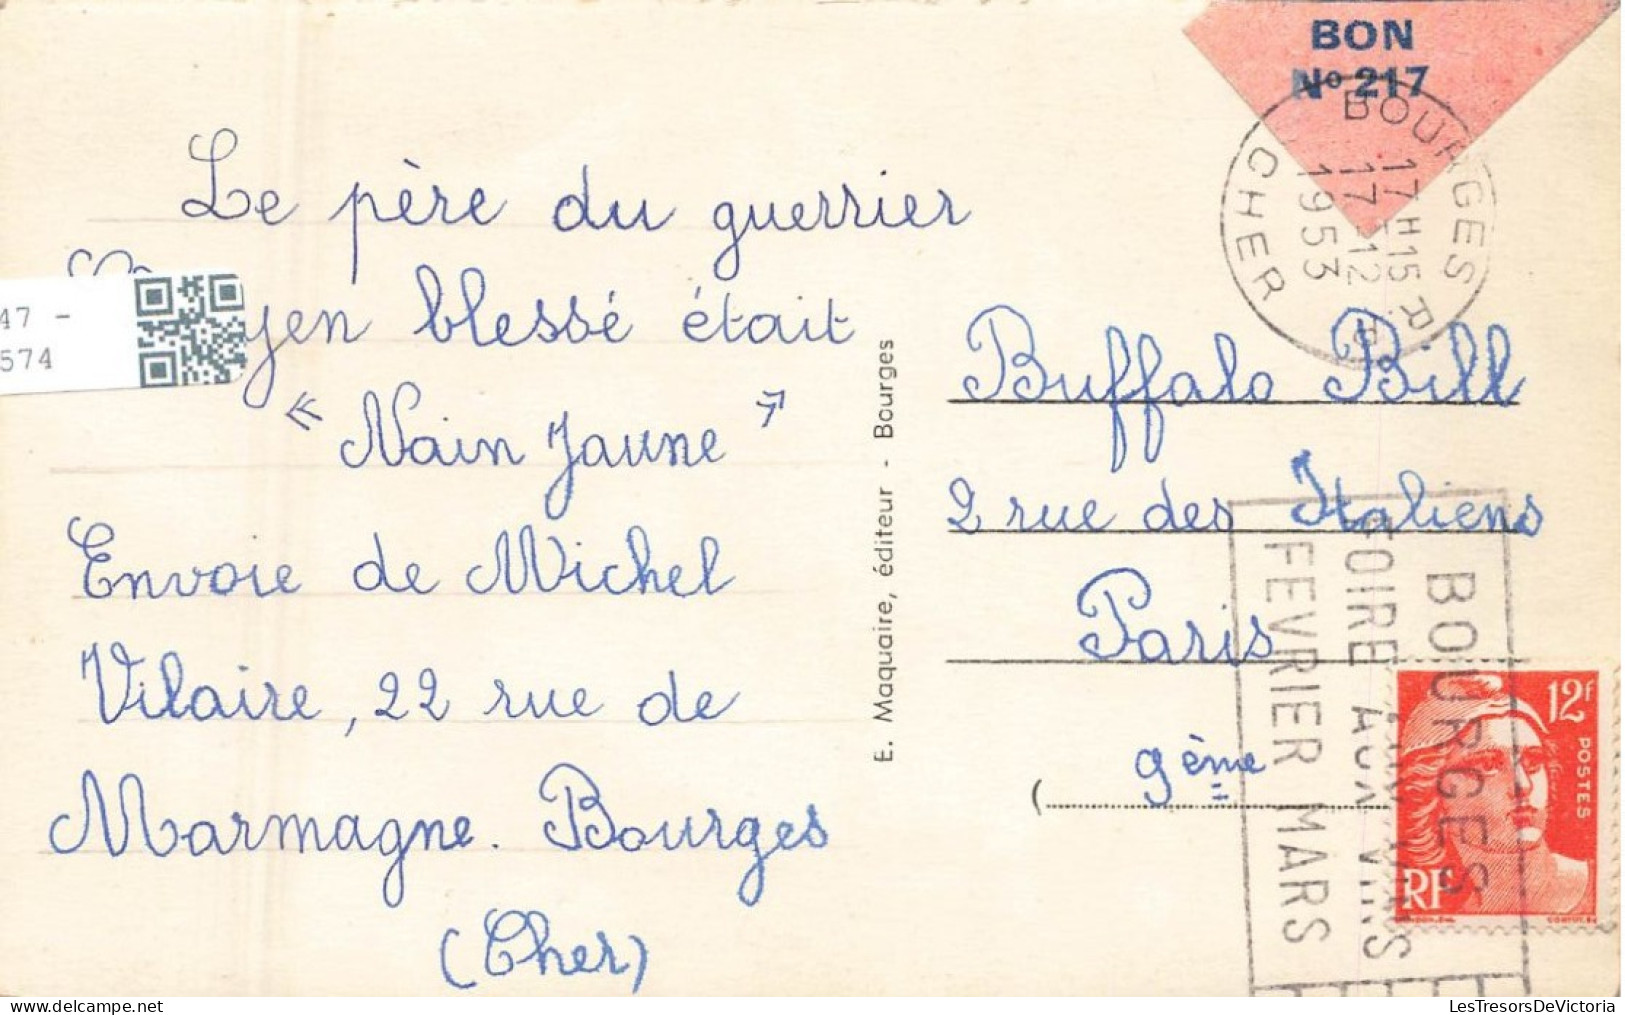 BON
Nº 217
BOURGES R.P.
17H15
17-12
1953
CHER
Le père du guerrier
yen blessé était
" Nain Jaune "
Envoie de Michel
Vilaire, 22 rue de
Marmagne. Bourges
(Cher)
47 -
574
E. Maquaire, éditeur - Bourges
Buffalo Bill
2 rue des Italiens
Paris
9ème
(
BOURGES
FOIRE AUX VINS
FEVRIER MARS
12F
POSTES
RF
LesTresorsDeVictoria